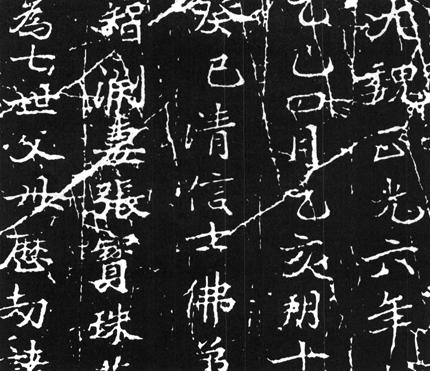 大魏正光六年
乙巳四月乙亥朔十
癸巳清信士佛弟
智渊妻張寶珠
為七世父母歷劫諸